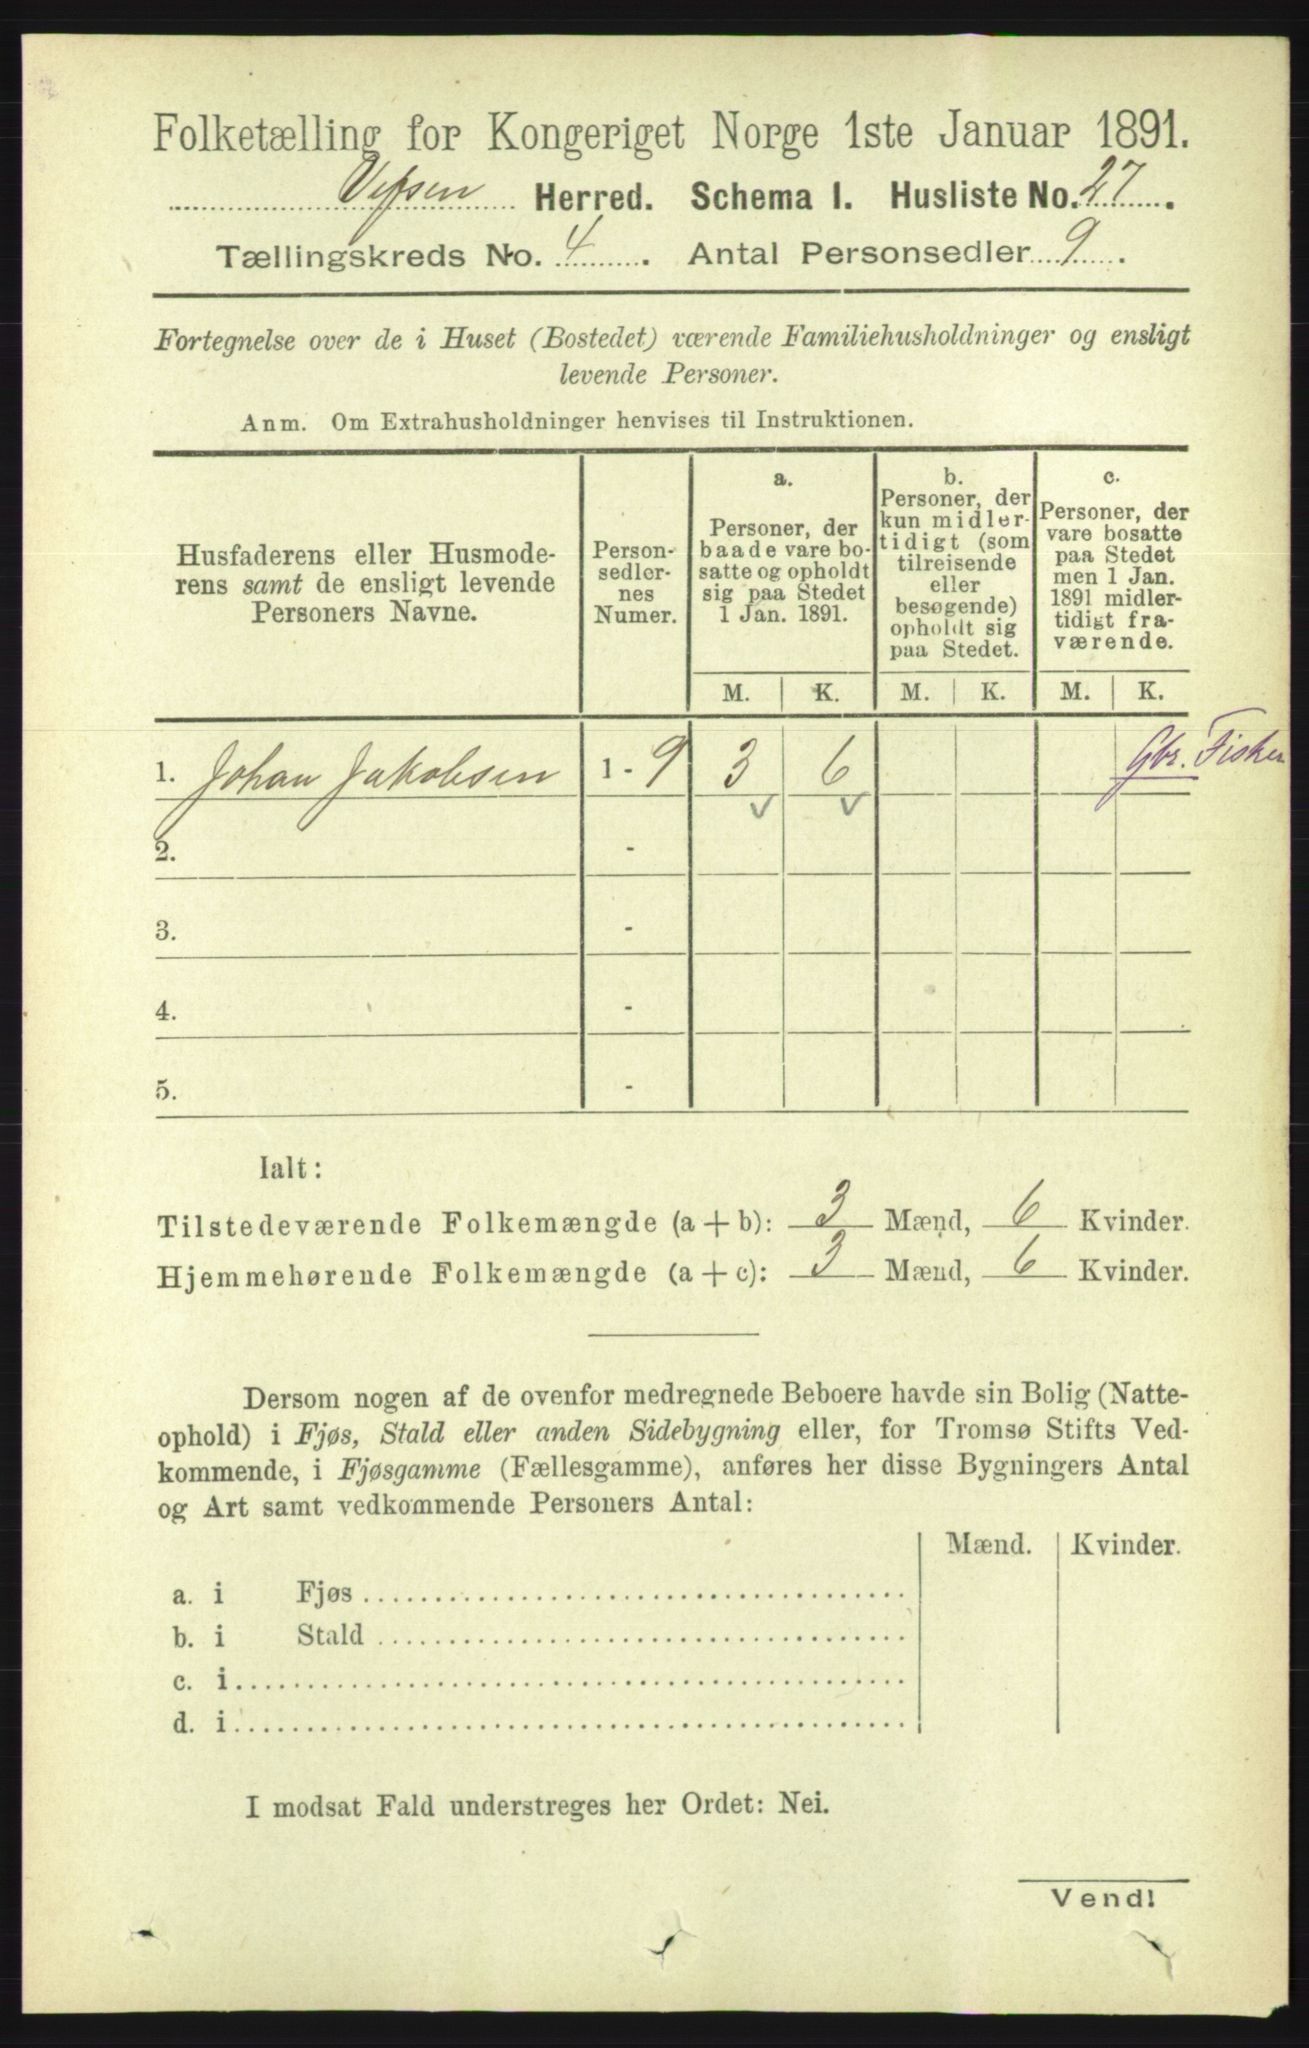 Folketælling for Kongeriget Norge 1ste Januar 1891.
Vefsen Herred. Schema I. Husliste No. 27.
Tællingskreds No. 4. Antal Personsedler 9.
Fortegnelse over de i Huset (Bostedet) værende Familiehusholdninger og ensligt
levende Personer.
Anm. Om Extrahusholdninger henvises til Instruktionen.
Husfaderens eller Husmode-
rens samt de ensligt levende
Personers Navne.
Person-
sedler-
nes
Numer.
a.
Personer, der
baade vare bo-
satte og opholdt
sig paa Stedet
1 Jan. 1891.
b.
Personer, der
kun midler-
tidigt (som
tilreisende
eller
besøgende)
opholdt sig
paa Stedet.
c.
Personer, der
vare bosatte
paa Stedet
men 1 Jan.
1891 midler-
tidigt fra-
værende.
M. K. M. K. M. K.
1. Johan Jakobsen 1 - 9 3 6 Gbr. Fisker
2. -
3. -
4. -
5. -
Ialt:
Tilstedeværende Folkemængde (a + b): 3 Mænd, 6 Kvinder.
Hjemmehørende Folkemængde (a + c): 3 Mænd, 6 Kvinder.
Dersom nogen af de ovenfor medregnede Beboere havde sin Bolig (Natte-
ophold) i Fjøs, Stald eller anden Sidebygning eller, for Tromsø Stifts Ved-
kommende, i Fjøsgamme (Fællesgamme), anføres her disse Bygningers Antal
og Art samt vedkommende Personers Antal:
Mænd. Kvinder.
a. i Fjøs
b. i Stald
c. i
d. i
I modsat Fald understreges her Ordet: Nei.
Vend!